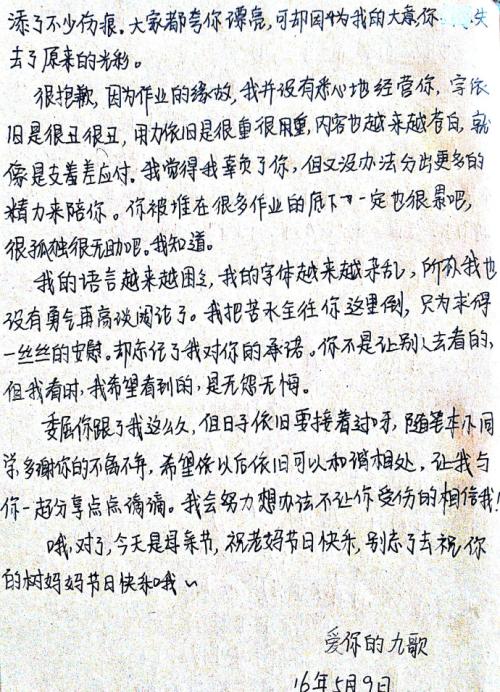 添了不少伤痕。大家都夸你漂亮,可却因为我的大意你失
去了原来的光彩。
很抱歉,因为作业的缘故,我并没有悉心地经营你,字依
旧是很丑很丑,用力依旧是很重很用重,内容也越来越苍白,就
像是支差差应付。我觉得我辜负了你,但又没办法分出更多的
精力来陪你。你被堆在很多作业的底下一定也很累吧,
很孤独很无助吧。我知道。
我的语言越来越困乏,我的字体越来越杂乱,所以我也
没有勇气再高谈阔论了。我把苦水全往你这里倒,只为求得
一丝丝的安慰。却忘记了我对你的承诺。你不是让别人去看的,
但我看时,我希望看到的,是无怨无悔。
委屈你跟了我这么久,但日子依旧要接着过呀,随笔本小同
学,多谢你的不离不弃,希望依以后依旧可以和谐相处,让我与
你一起分享点点滴滴。我会努力想办法不让你受伤的相信我!
哦,对了,今天是母亲节,祝老妈节日快乐,别忘了去祝你
的树妈妈节日快乐哦~
爱你的九歌
16年5月9日